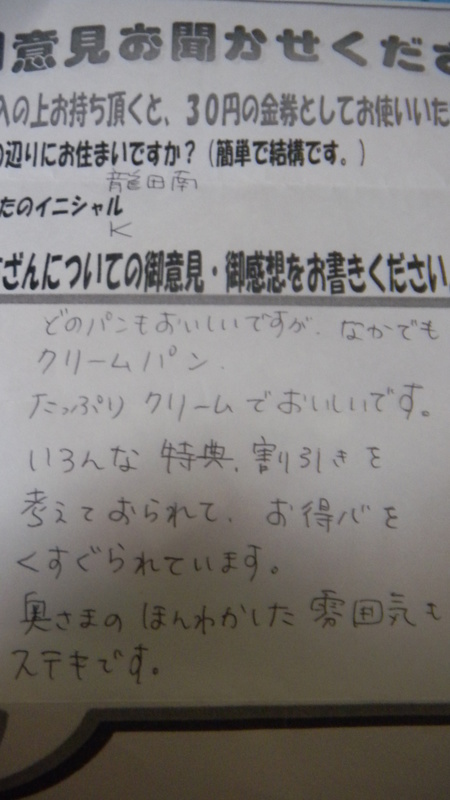 意見お聞かせくださ
入の上お持ち頂くと、30円の金券としてお使いいた
辺りにお住まいですか?(簡単で結構です。)
龍田南
たのイニシャル
K
ざんについての御意見・御感想をお書きください
どのパンもおいしいですが、なかでも
クリームパン.
たっぷりクリームでおいしいです。
いろんな特典、割り引きを
考えておられて、お得心を
くすぐられています。
奥さまのほんわかした雰囲気も
ステキです。